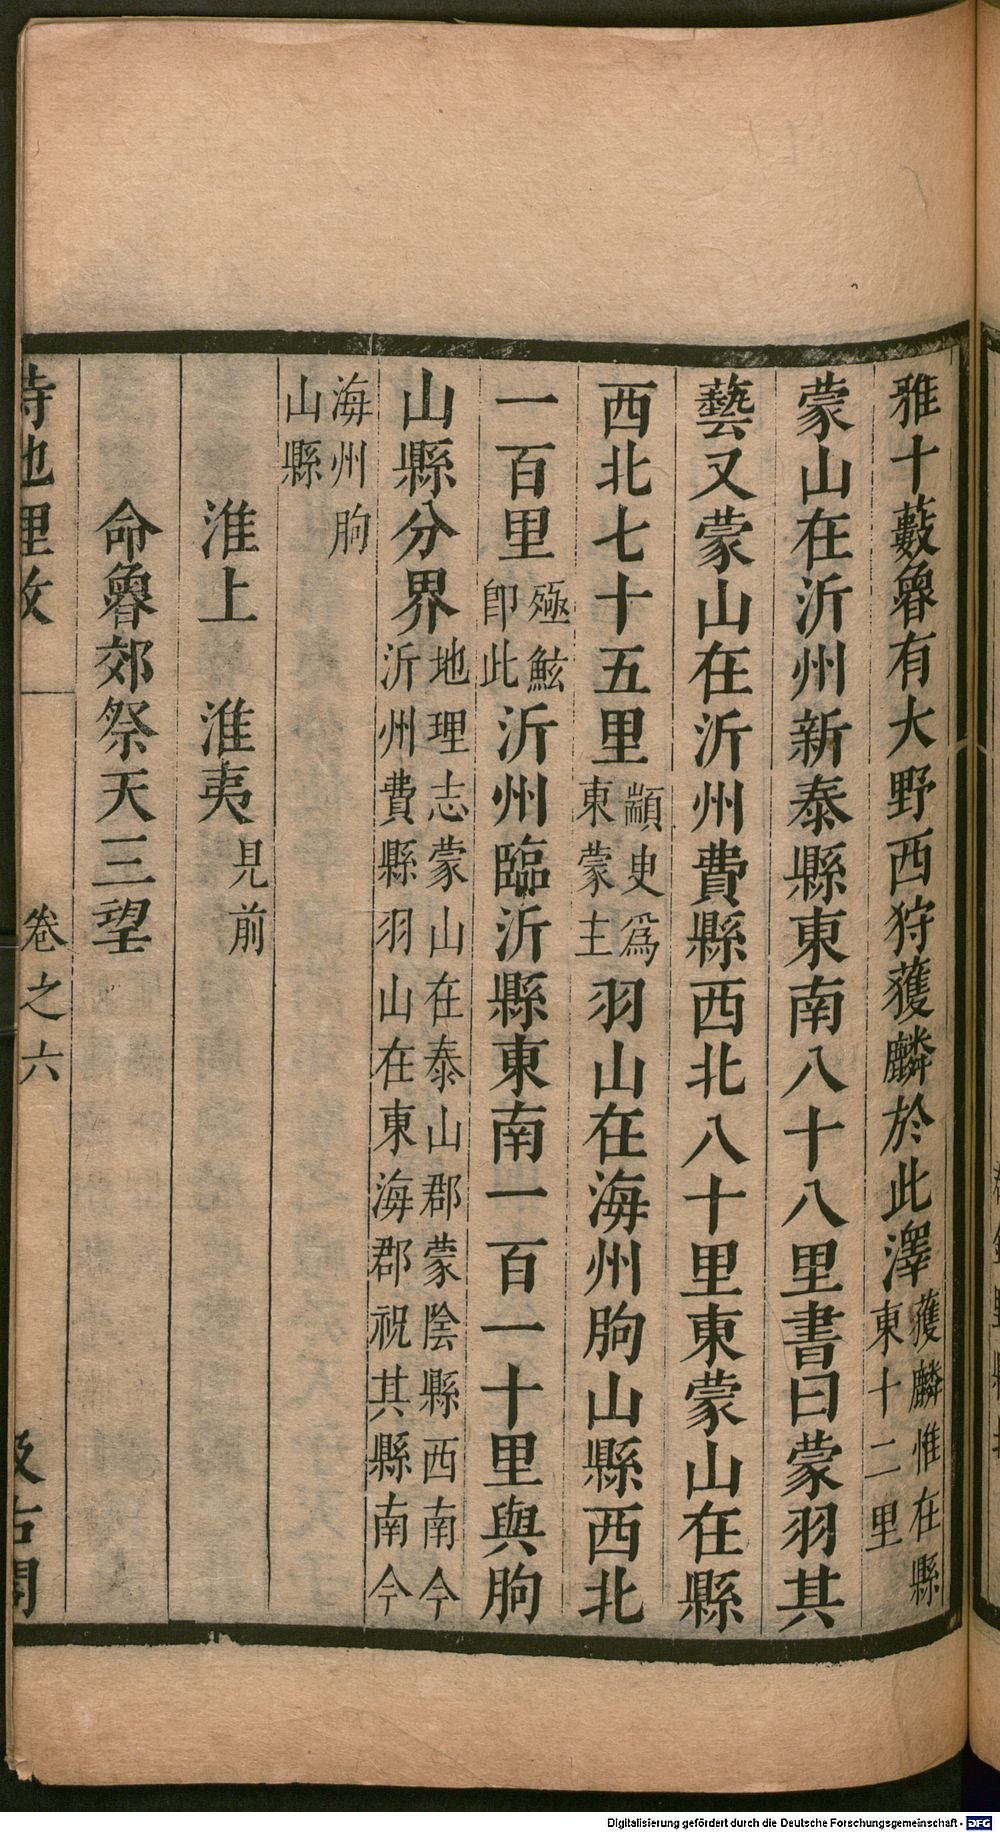 雅十藪魯有大野西狩獲麟於此澤獲麟惟在縣東十二里
蒙山在沂州新泰縣東南八十八里書曰蒙羽其
藝又蒙山在沂州費縣西北八十里東蒙山在縣
西北七十五里顓臾爲東蒙主羽山在海州朐山縣西北
一百里殛鮌卽此沂州臨沂縣東南一百一十里與朐
山縣分界地理志蒙山在泰山郡蒙陰縣西南今沂州費縣羽山在東海郡祝其縣南今
海州朐山縣
淮上　淮夷見前
命魯郊祭天三望
詩地理攷　卷之六　汲古閣
Digitalisierung gefördert durch die Deutsche Forschungsgemeinschaft - DFG